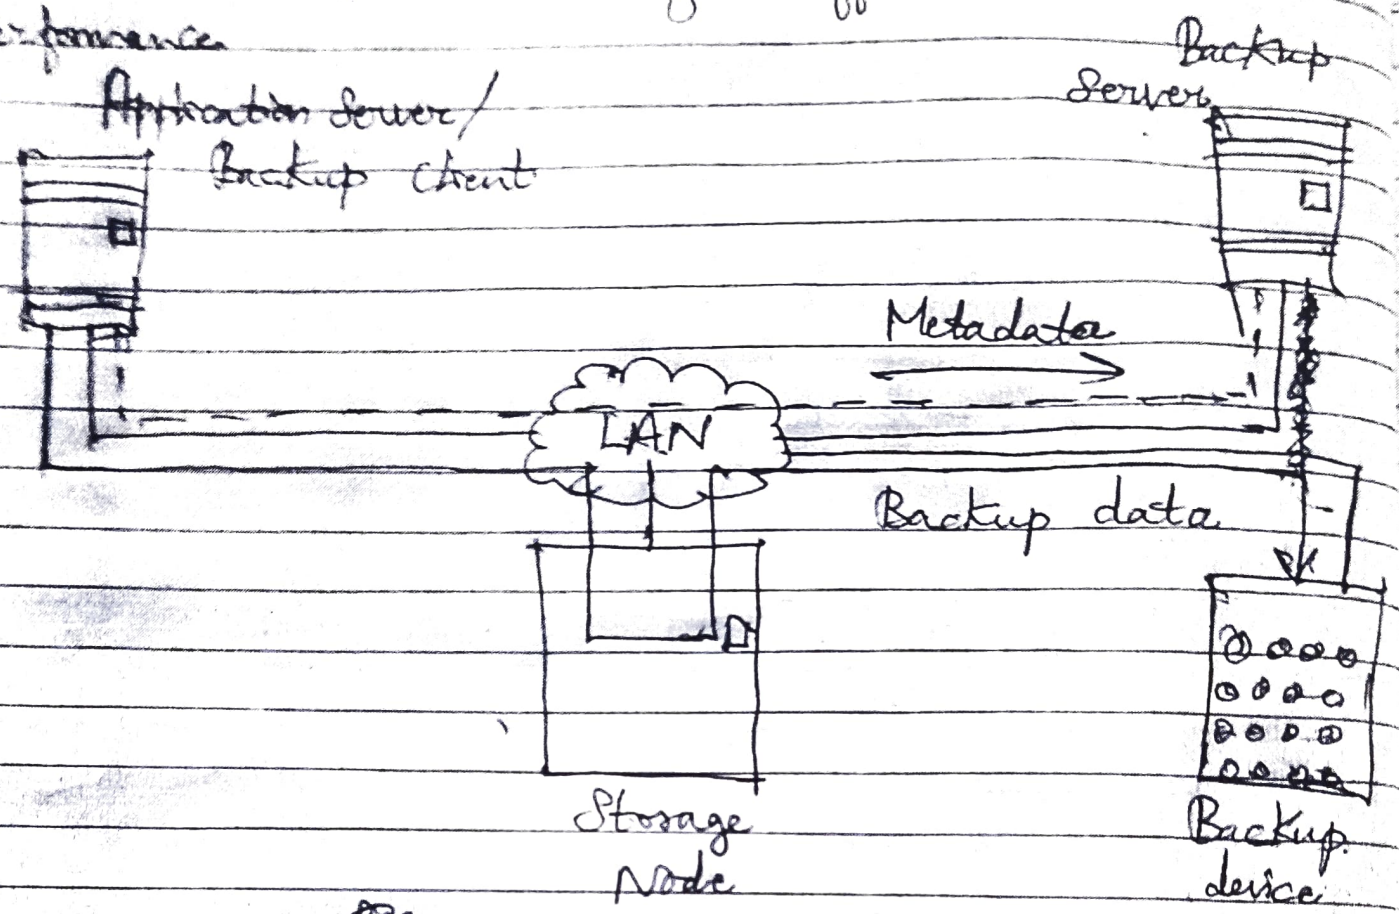 Application Server/
Backup Client
Backup
Server
Metadata
LAN
Backup data
Storage
Node
Backup
device